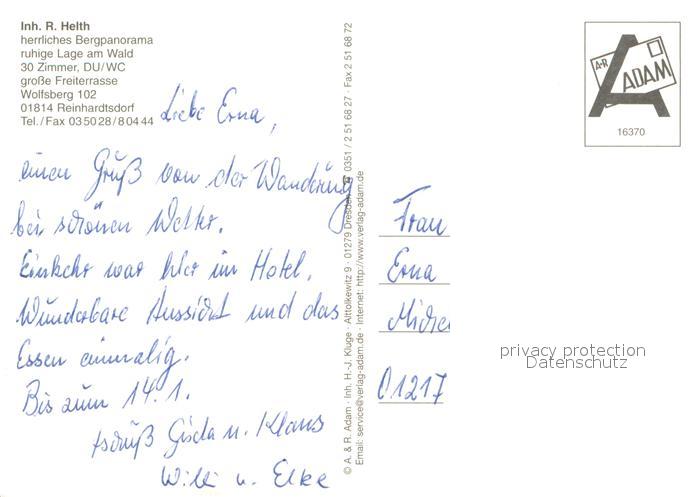 Inh. R. Helth
herrliches Bergpanorama
ruhige Lage am Wald
30 Zimmer, DU/WC
große Freiterrasse
Wolfsberg 102
01814 Reinhardtsdorf
Tel./Fax 035028/80444
Liebe Erna,
einen Gruß von der Wanderung
bei schönen Wetter.
Einkehr war hier im Hotel.
Wunderbare Aussicht und das
Essen einmalig.
Bis zum 14.1.
tschüß Gisela u. Klaus
Willi u. Elke
© A. & R. Adam · Inh. H.-J. Kluge · Alttolkewitz 9 · 01279 Dresden · 0351 / 2 51 68 27 · Fax 2 51 68 72
Email: service@verlag-adam.de · Internet: http://www.verlag-adam.de
A+R
ADAM
16370
Frau
Erna
01217
privacy protection
Datenschutz